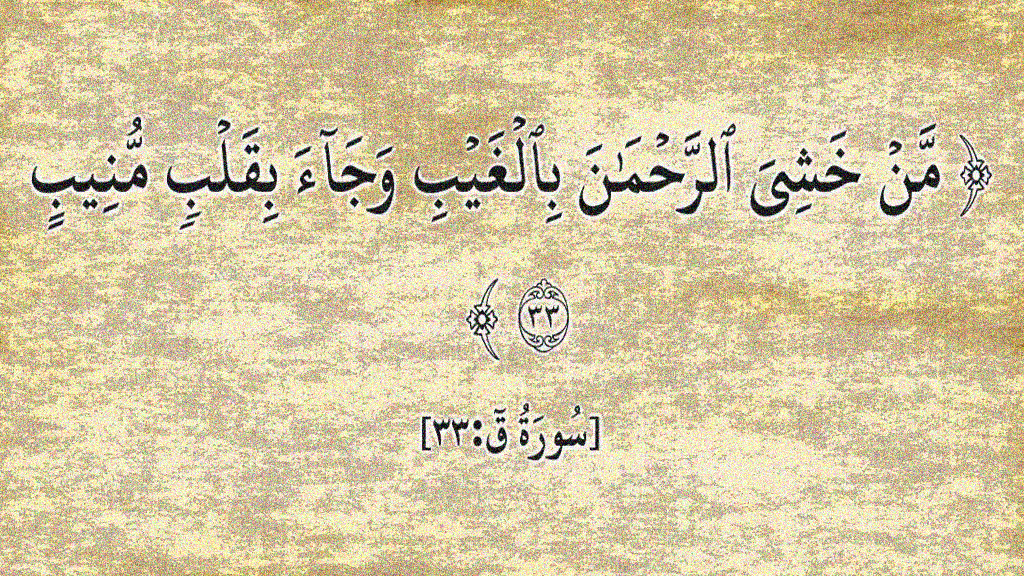 ﴿ مَّنْ خَشِىَ ٱلرَّحْمَـٰنَ بِٱلْغَيْبِ وَجَآءَ بِقَلْبٍ مُّنِيبٍ
٣٣ ﴾
[سُورَةُ قٓ:٣٣]